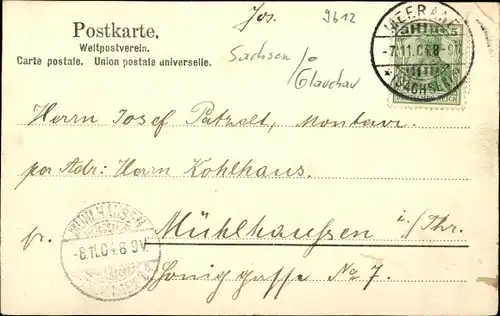 Jos. 9612
Postkarte.
Weltpostverein.
Carte postale. Union postale universelle.
Sachsen/o
Glauchau
MEERANE
-7.11.04.8-9V.
*(SACHSEN)
5
Herrn Josef Patzelt, Monteur.
per Adr: Herrn Kohlhaus.
fr. Mühlhausen i/Thr.
Honiggasse No 7.
MÜHLHAUSEN
-8.11.04.8 9V.